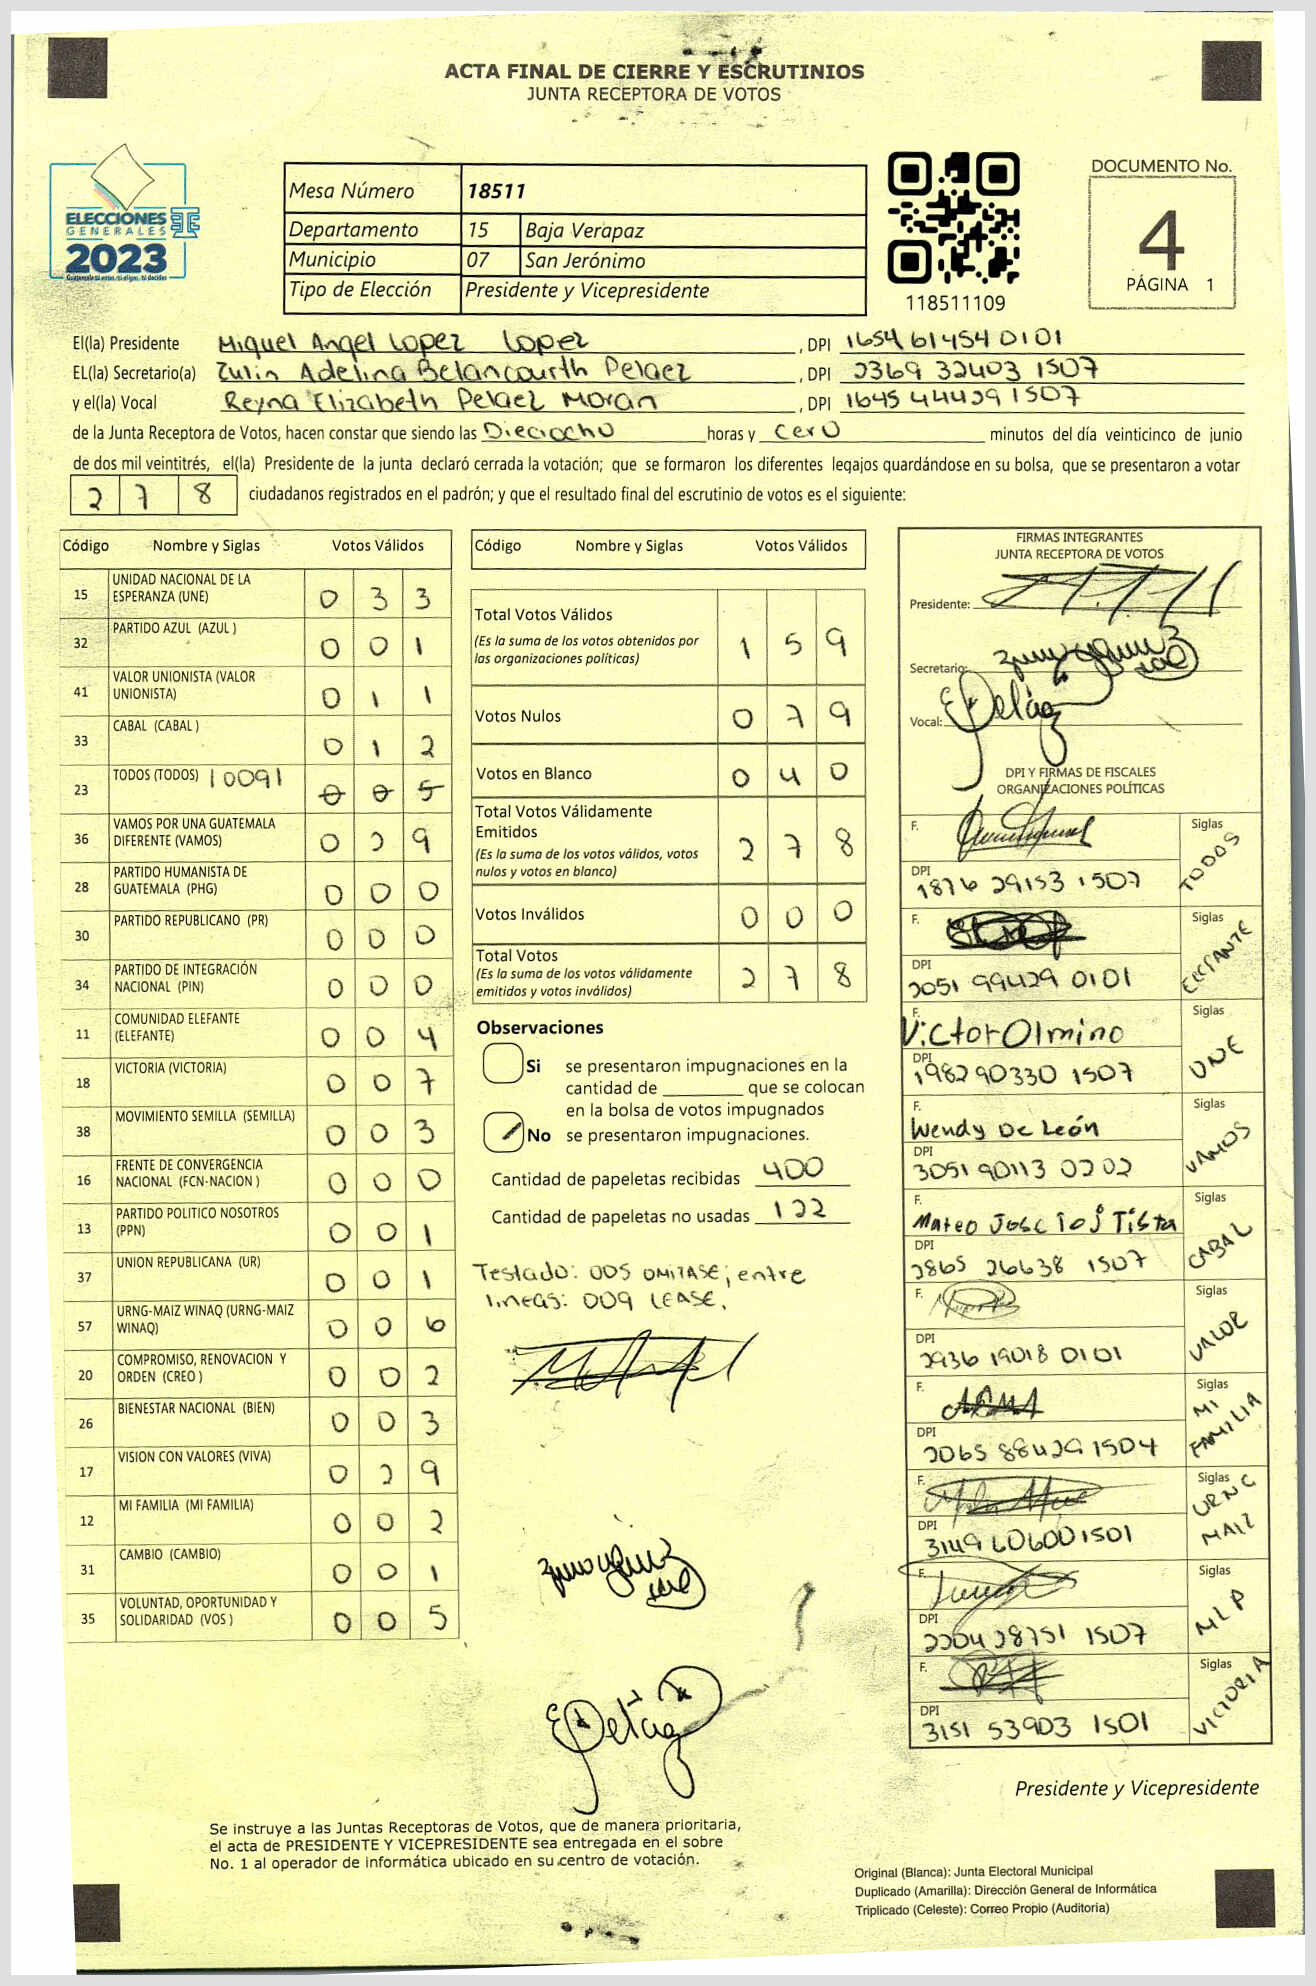 ACTA FINAL DE CIERRE Y ESCRUTINIOS
JUNTA RECEPTORA DE VOTOS
ELECCIONES
GENERALES
2023
Mesa Número 18511
Departamento 15 Baja Verapaz
Municipio 07 San Jerónimo
Tipo de Elección Presidente y Vicepresidente
118511109
DOCUMENTO No.
4
PÁGINA 1
El(la) Presidente Miguel Angel Lopez Lopez, DPI 1654 61454 0101
EL(la) Secretario(a) Zulin Adelina Betancourth Pelaez, DPI 2369 32403 1507
y el(la) Vocal Reyna Elizabeth Pelaez Moran, DPI 1645 44429 1507
de la Junta Receptora de Votos, hacen constar que siendo las Dieciocho horas y cero minutos del día veinticinco de junio
de dos mil veintitrés, el(la) Presidente de la junta declaró cerrada la votación; que se formaron los diferentes legajos guardándose en su bolsa, que se presentaron a votar
278 ciudadanos registrados en el padrón; y que el resultado final del escrutinio de votos es el siguiente:
Código Nombre y Siglas Votos Válidos
15 UNIDAD NACIONAL DE LA ESPERANZA (UNE) 0 3 3
32 PARTIDO AZUL (AZUL ) 0 0 1
41 VALOR UNIONISTA (VALOR UNIONISTA) 0 1 1
33 CABAL (CABAL ) 0 1 2
23 TODOS (TODOS) 0 0 5
36 VAMOS POR UNA GUATEMALA DIFERENTE (VAMOS) 0 2 9
28 PARTIDO HUMANISTA DE GUATEMALA (PHG) 0 0 0
30 PARTIDO REPUBLICANO (PR) 0 0 0
34 PARTIDO DE INTEGRACIÓN NACIONAL (PIN) 0 0 0
11 COMUNIDAD ELEFANTE (ELEFANTE) 0 0 4
18 VICTORIA (VICTORIA) 0 0 7
38 MOVIMIENTO SEMILLA (SEMILLA) 0 0 3
16 FRENTE DE CONVERGENCIA NACIONAL (FCN-NACION ) 0 0 0
13 PARTIDO POLITICO NOSOTROS (PPN) 0 0 1
37 UNION REPUBLICANA (UR) 0 0 1
57 URNG-MAIZ WINAQ (URNG-MAIZ WINAQ) 0 0 6
20 COMPROMISO, RENOVACION Y ORDEN (CREO ) 0 0 2
26 BIENESTAR NACIONAL (BIEN) 0 0 3
17 VISION CON VALORES (VIVA) 0 2 9
12 MI FAMILIA (MI FAMILIA) 0 0 2
31 CAMBIO (CAMBIO) 0 0 1
35 VOLUNTAD, OPORTUNIDAD Y SOLIDARIDAD (VOS ) 0 0 5
Código Nombre y Siglas Votos Válidos
Total Votos Válidos 1 5 9
(Es la suma de los votos obtenidos por las organizaciones políticas)
Votos Nulos 0 7 9
Votos en Blanco 0 4 0
Total Votos Válidamente Emitidos 2 7 8
(Es la suma de los votos válidos, votos nulos y votos en blanco)
Votos Inválidos 0 0 0
Total Votos 2 7 8
(Es la suma de los votos válidamente emitidos y votos inválidos)
Observaciones
Si se presentaron impugnaciones en la
cantidad de ________ que se colocan
en la bolsa de votos impugnados
No se presentaron impugnaciones.
Cantidad de papeletas recibidas 400
Cantidad de papeletas no usadas 122
Testado: 005 OMITASE; entre
lineas: 009 LEASE.
FIRMAS INTEGRANTES
JUNTA RECEPTORA DE VOTOS
Presidente:
Secretario:
Vocal: Peláez
DPI Y FIRMAS DE FISCALES
ORGANIZACIONES POLÍTICAS
F. Siglas TODOS
DPI 1876 29153 1507
F. Siglas ELEFANTE
DPI 2051 99429 0101
F. Victor Olmino Siglas UNE
DPI 1982 90330 1507
F. Wendy De León Siglas VAMOS
DPI 3051 90113 0202
F. Mateo Jose Toj Tista Siglas CABAL
DPI 2865 26638 1507
F. Siglas VALOR
DPI 2936 19018 0101
F. Siglas MI FAMILIA
DPI 2065 88429 1504
F. Siglas URNG MAIZ
DPI 3149 60600 1501
F. Siglas MLP
DPI 2204 28751 1507
F. Siglas VICTORIA
DPI 3151 53903 1501
Peláez
Presidente y Vicepresidente
Se instruye a las Juntas Receptoras de Votos, que de manera prioritaria,
el acta de PRESIDENTE Y VICEPRESIDENTE sea entregada en el sobre
No. 1 al operador de informática ubicado en su centro de votación.
Original (Blanca): Junta Electoral Municipal
Duplicado (Amarilla): Dirección General de Informática
Triplicado (Celeste): Correo Propio (Auditoria)